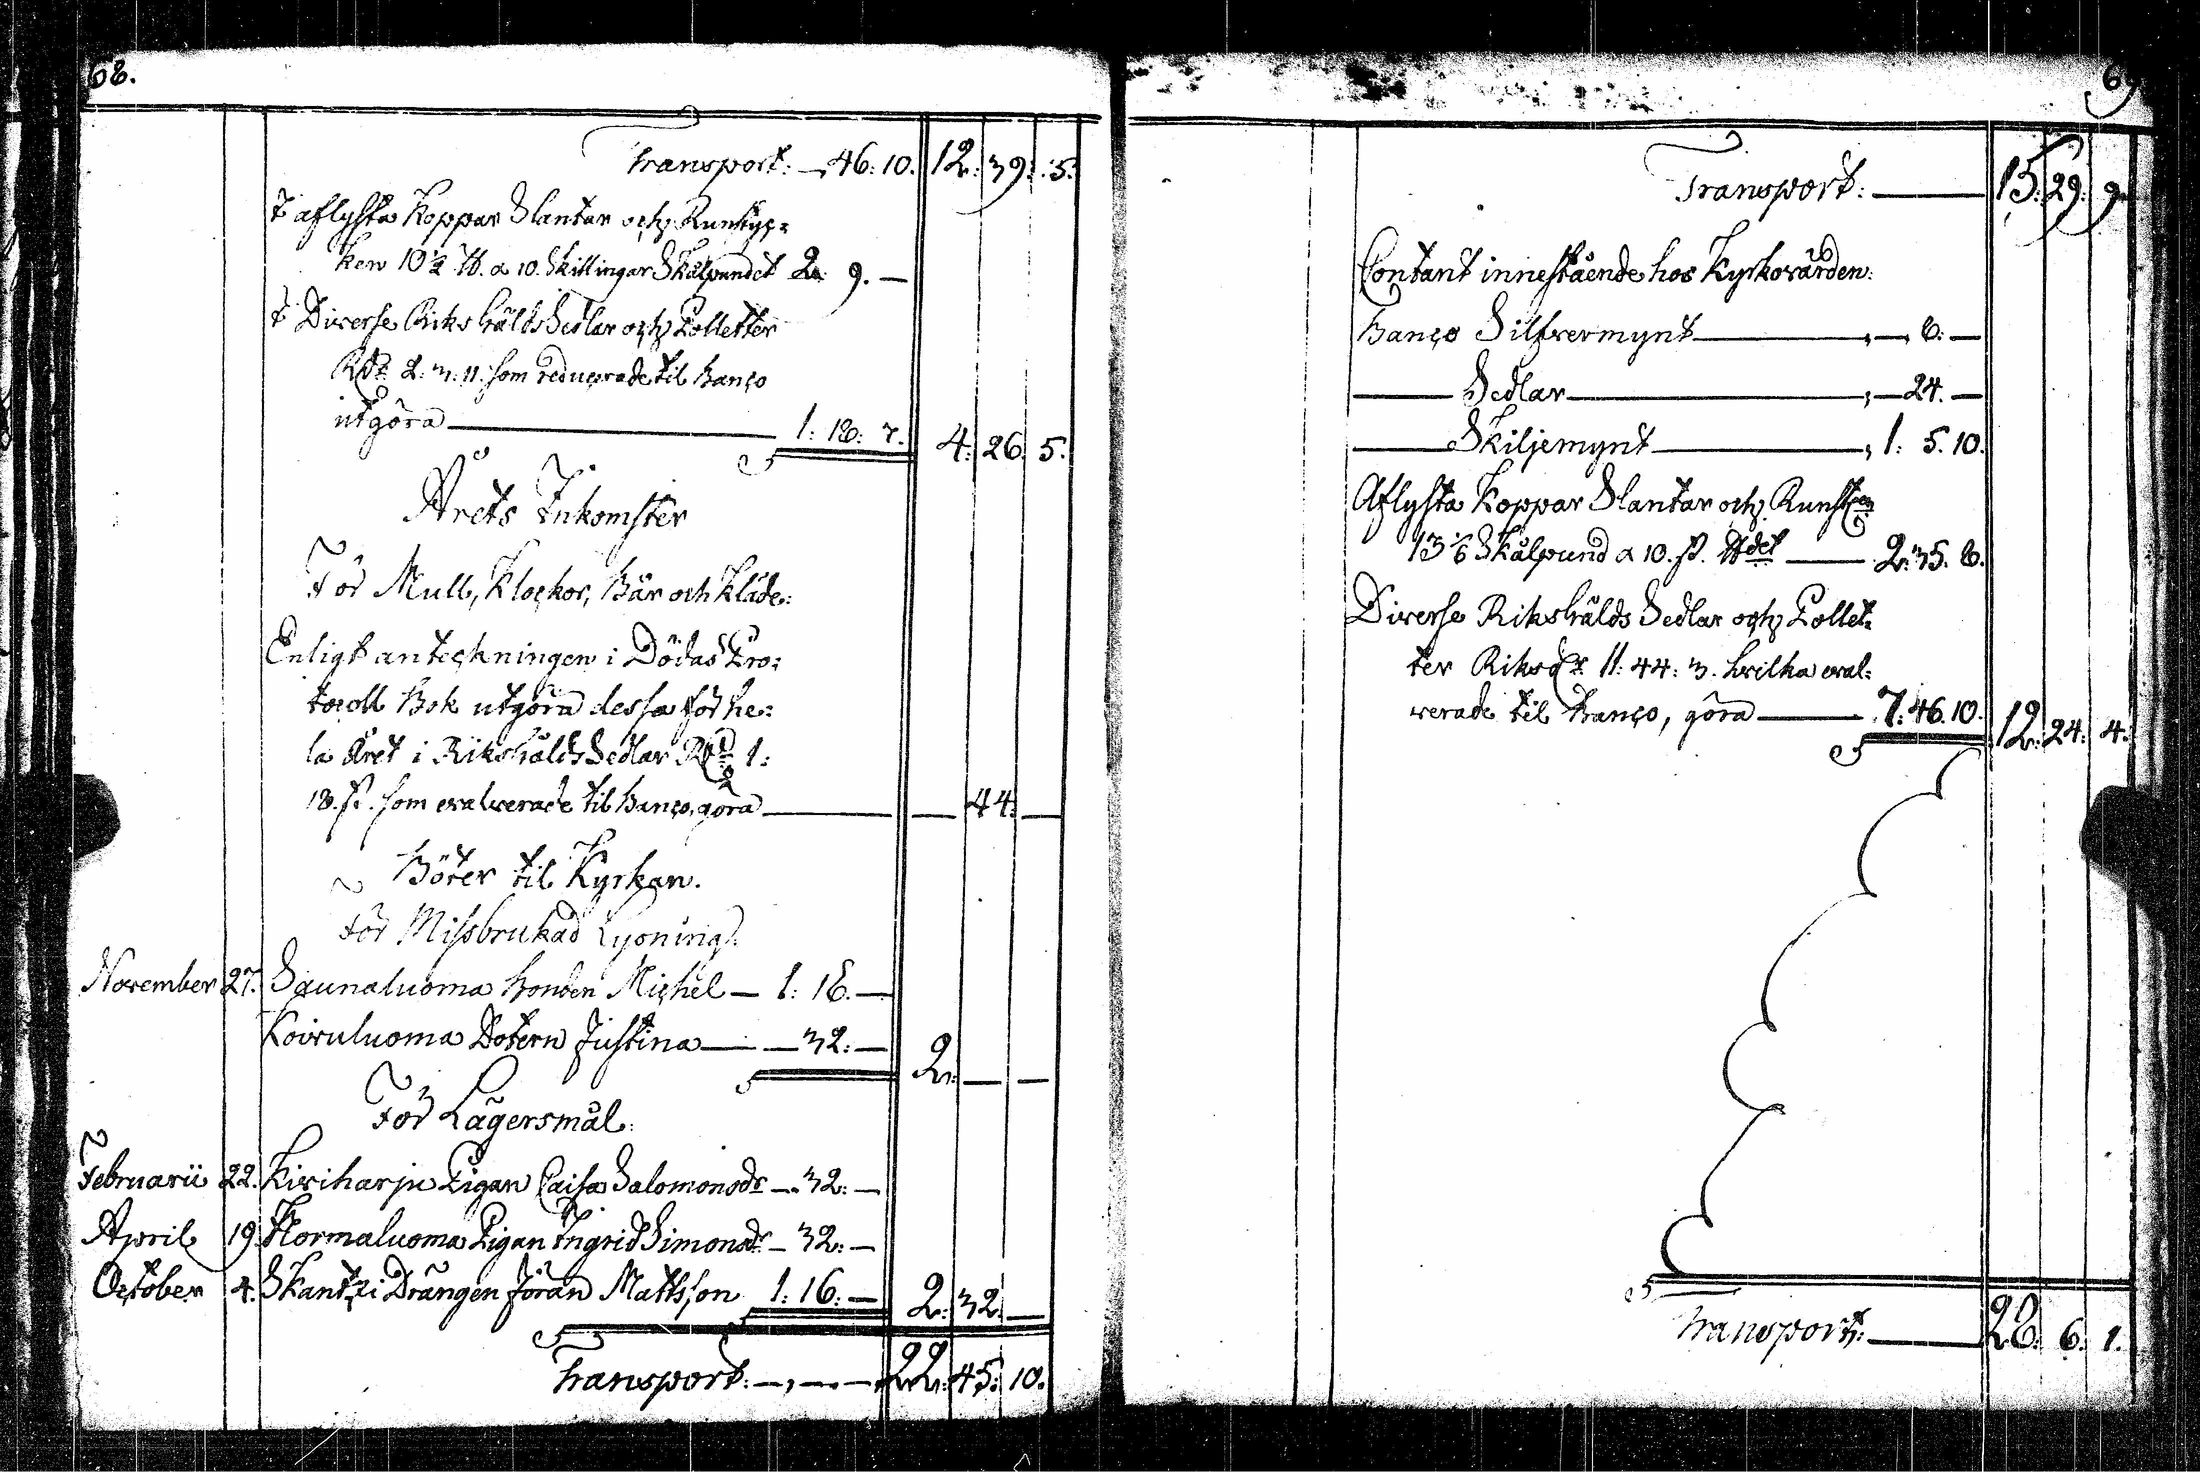 68.
Transport: — 46: 10. 12: 39: 5:
I aflysta Koppar Slantar och Runstyc=
ken 10 1/2 ℔. a 10. Skillingar Skålpundet 2: 9. —
I Diverse Riksgälds Sedlar och Polletter
Rdr 2: 3: 11. som reducerade til Banco
utgöra — 1: 18: 7. 4: 26. 5.
Årets Inkomster
För Mull, Klockor, Bår och Kläde:
Enligt anteckningen i Dödas Pro=
tocoll Bok utgöra dessa för he=
la året i Riksgälds Sedlar Rdr 1:
18. ß. som evalverade til Banco, göra — — 44: —
Böter til Kyrkan.
För Missbrukad
November 27. Saunaluoma Bonden Michel — 1: 16. —
Koivuluoma Dotern Justina — — 32: — 2: — —
För Lägersmål:
Februarii 22. Kiviharju Pigan Caisa Salomonsdr — 32: —
April 19. Normaluoma Pigan Ingrid Simonsdr — 32: —
October 4. Skantzi Drängen Jöran Mattsson 1: 16: — 2: 32. —
Transport: — , — . — 22: 45: 10.
69
Transport: — 15: 29: 9.
Contant innestående hos Kyrkovärden:
Banco Silfvermynt — , — 8: —
— Sedlar — , — 24. —
— Skiljemynt — , 1: 5. 10.
Aflysta Koppar Slantar och Runst
13 1/6 Skålpund a 10. ß. ℔det — 2: 35. 8.
Diverse Riksgälds Sedlar och Pollet=
ter Riksdr 11: 44: 3. hvilka eval=
verade til Banco, göra — 7: 46. 10. 12: 24: 4.
Transport: — 28: 6. 1.